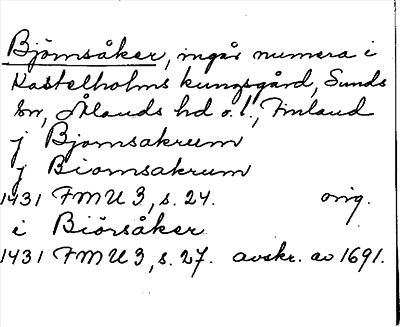 Björnsåker, ingår numera i
Kastelholms kungsgård, Sunds
sn, Ålands hd o. l., Finland
j Bjornsakrum
j Biornsakrum
1431 FMU 3, s. 24. orig.
i Biörsåker
1431 FMU 3, s. 27. avskr. av 1691.